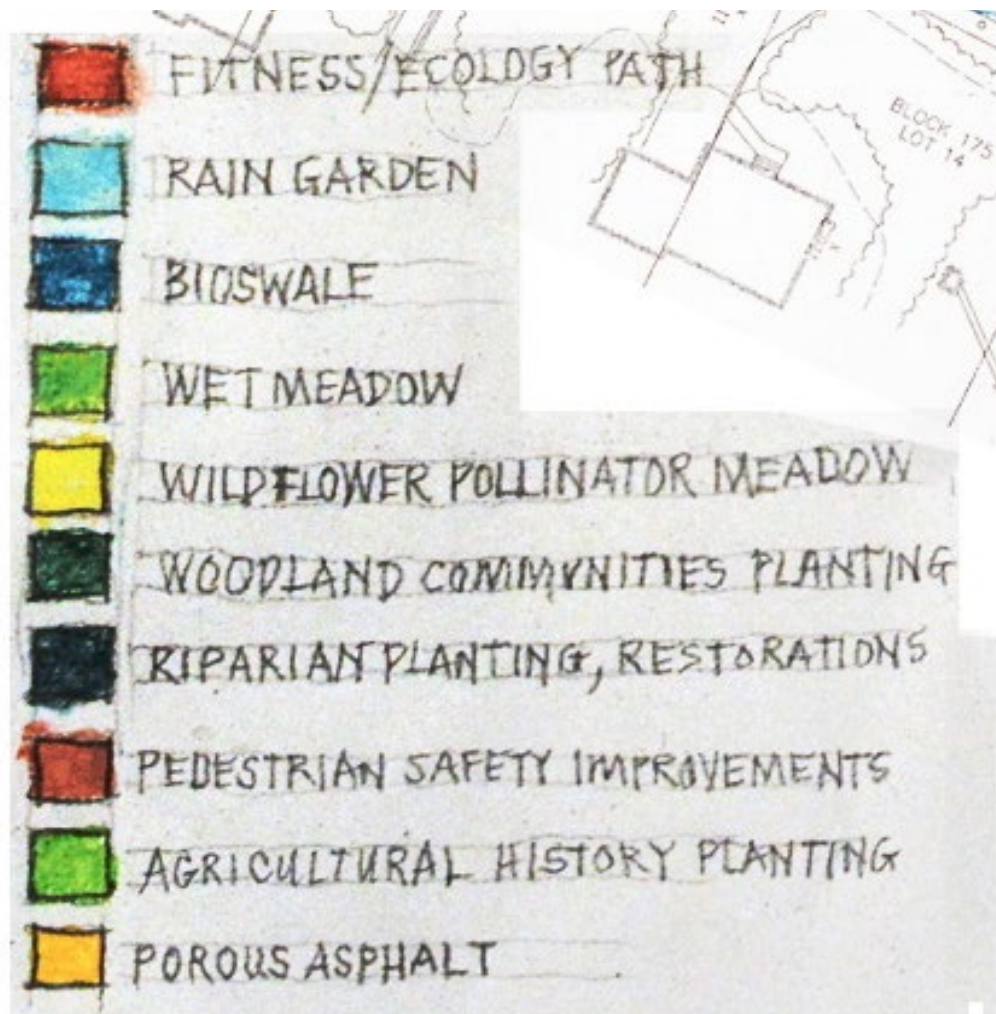 FITNESS/ECOLOGY PATH
BLOCK 175
LOT 14
RAIN GARDEN
BIOSWALE
WET MEADOW
WILDFLOWER POLLINATOR MEADOW
WOODLAND COMMUNITIES PLANTING
RIPARIAN PLANTING, RESTORATIONS
PEDESTRIAN SAFETY IMPROVEMENTS
AGRICULTURAL HISTORY PLANTING
POROUS ASPHALT